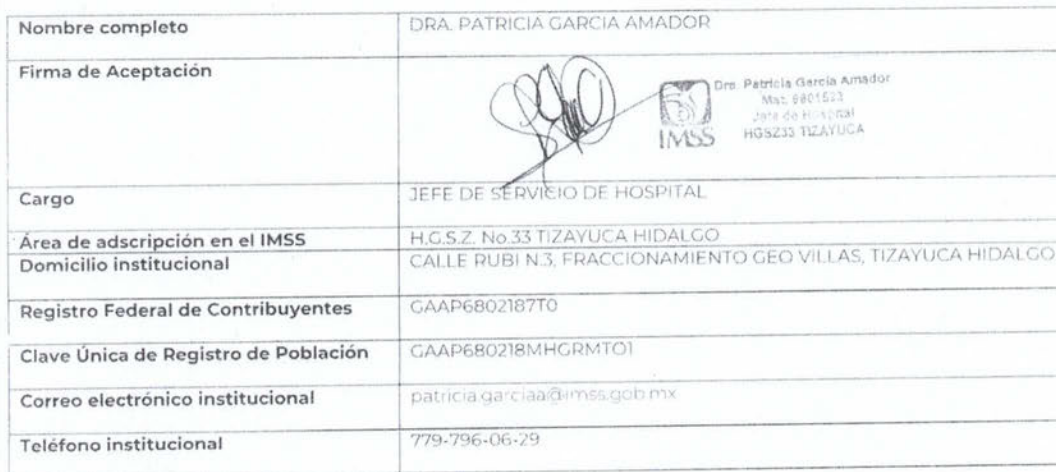 Nombre completo DRA. PATRICIA GARCIA AMADOR
Firma de Aceptación
Dra. Patricia García Amador
Mat. 9801523
Jefe de Hospital
IMSS HGSZ33 TIZAYUCA
Cargo JEFE DE SERVICIO DE HOSPITAL
Área de adscripción en el IMSS H.G.S.Z. No.33 TIZAYUCA HIDALGO
Domicilio institucional CALLE RUBI N.3, FRACCIONAMIENTO GEO VILLAS, TIZAYUCA HIDALGO
Registro Federal de Contribuyentes GAAP6802187T0
Clave Única de Registro de Población GAAP680218MHGRMT01
Correo electrónico institucional patricia.garciaa@imss.gob.mx
Teléfono institucional 779-796-06-29